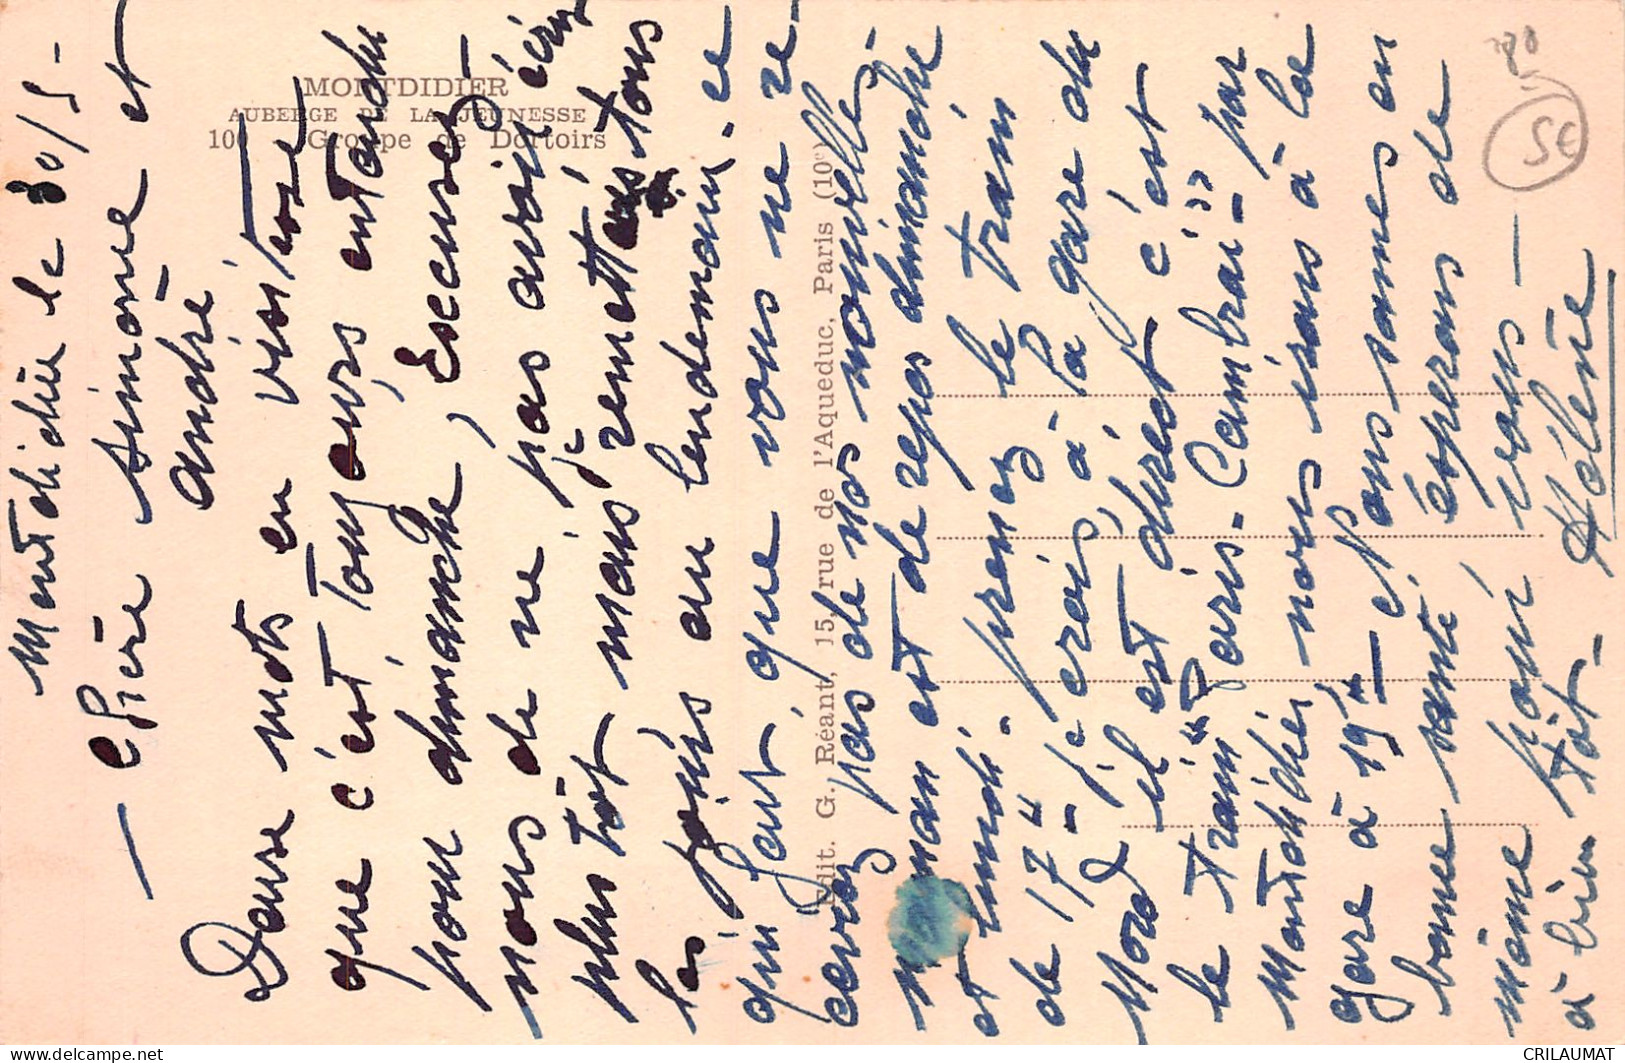 MONTDIDIER
AUBERGE DE LA JEUNESSE
10 Groupe de Dortoirs
Edit. G. Réant, 15, rue de l'Aqueduc, Paris (10e)
80
5€
Montdidier le 30/5 -
- Chère Simone et
André
Deuxe mots en vitesse
que c'est toujours entendu
pour dimanche, Excusez -
nous de ne pas avoir écrit
plus tôt mais je remettais tous
les jours au lendemain - ce
qui fait que vous ne re-
cevrez pas de nos nouvelles -
maman est de repos dimanche
et lundi - prenez le train
de 17h - je crois, à la gare du
Nord il est direct c'est
le train "Paris - Cambrai" par
Montdidier nous irons à la
gare à 19h - Nous sommes en
bonne santé espérons de
même pour vous -
à bien tôt - Hélène
CRILAUMAT